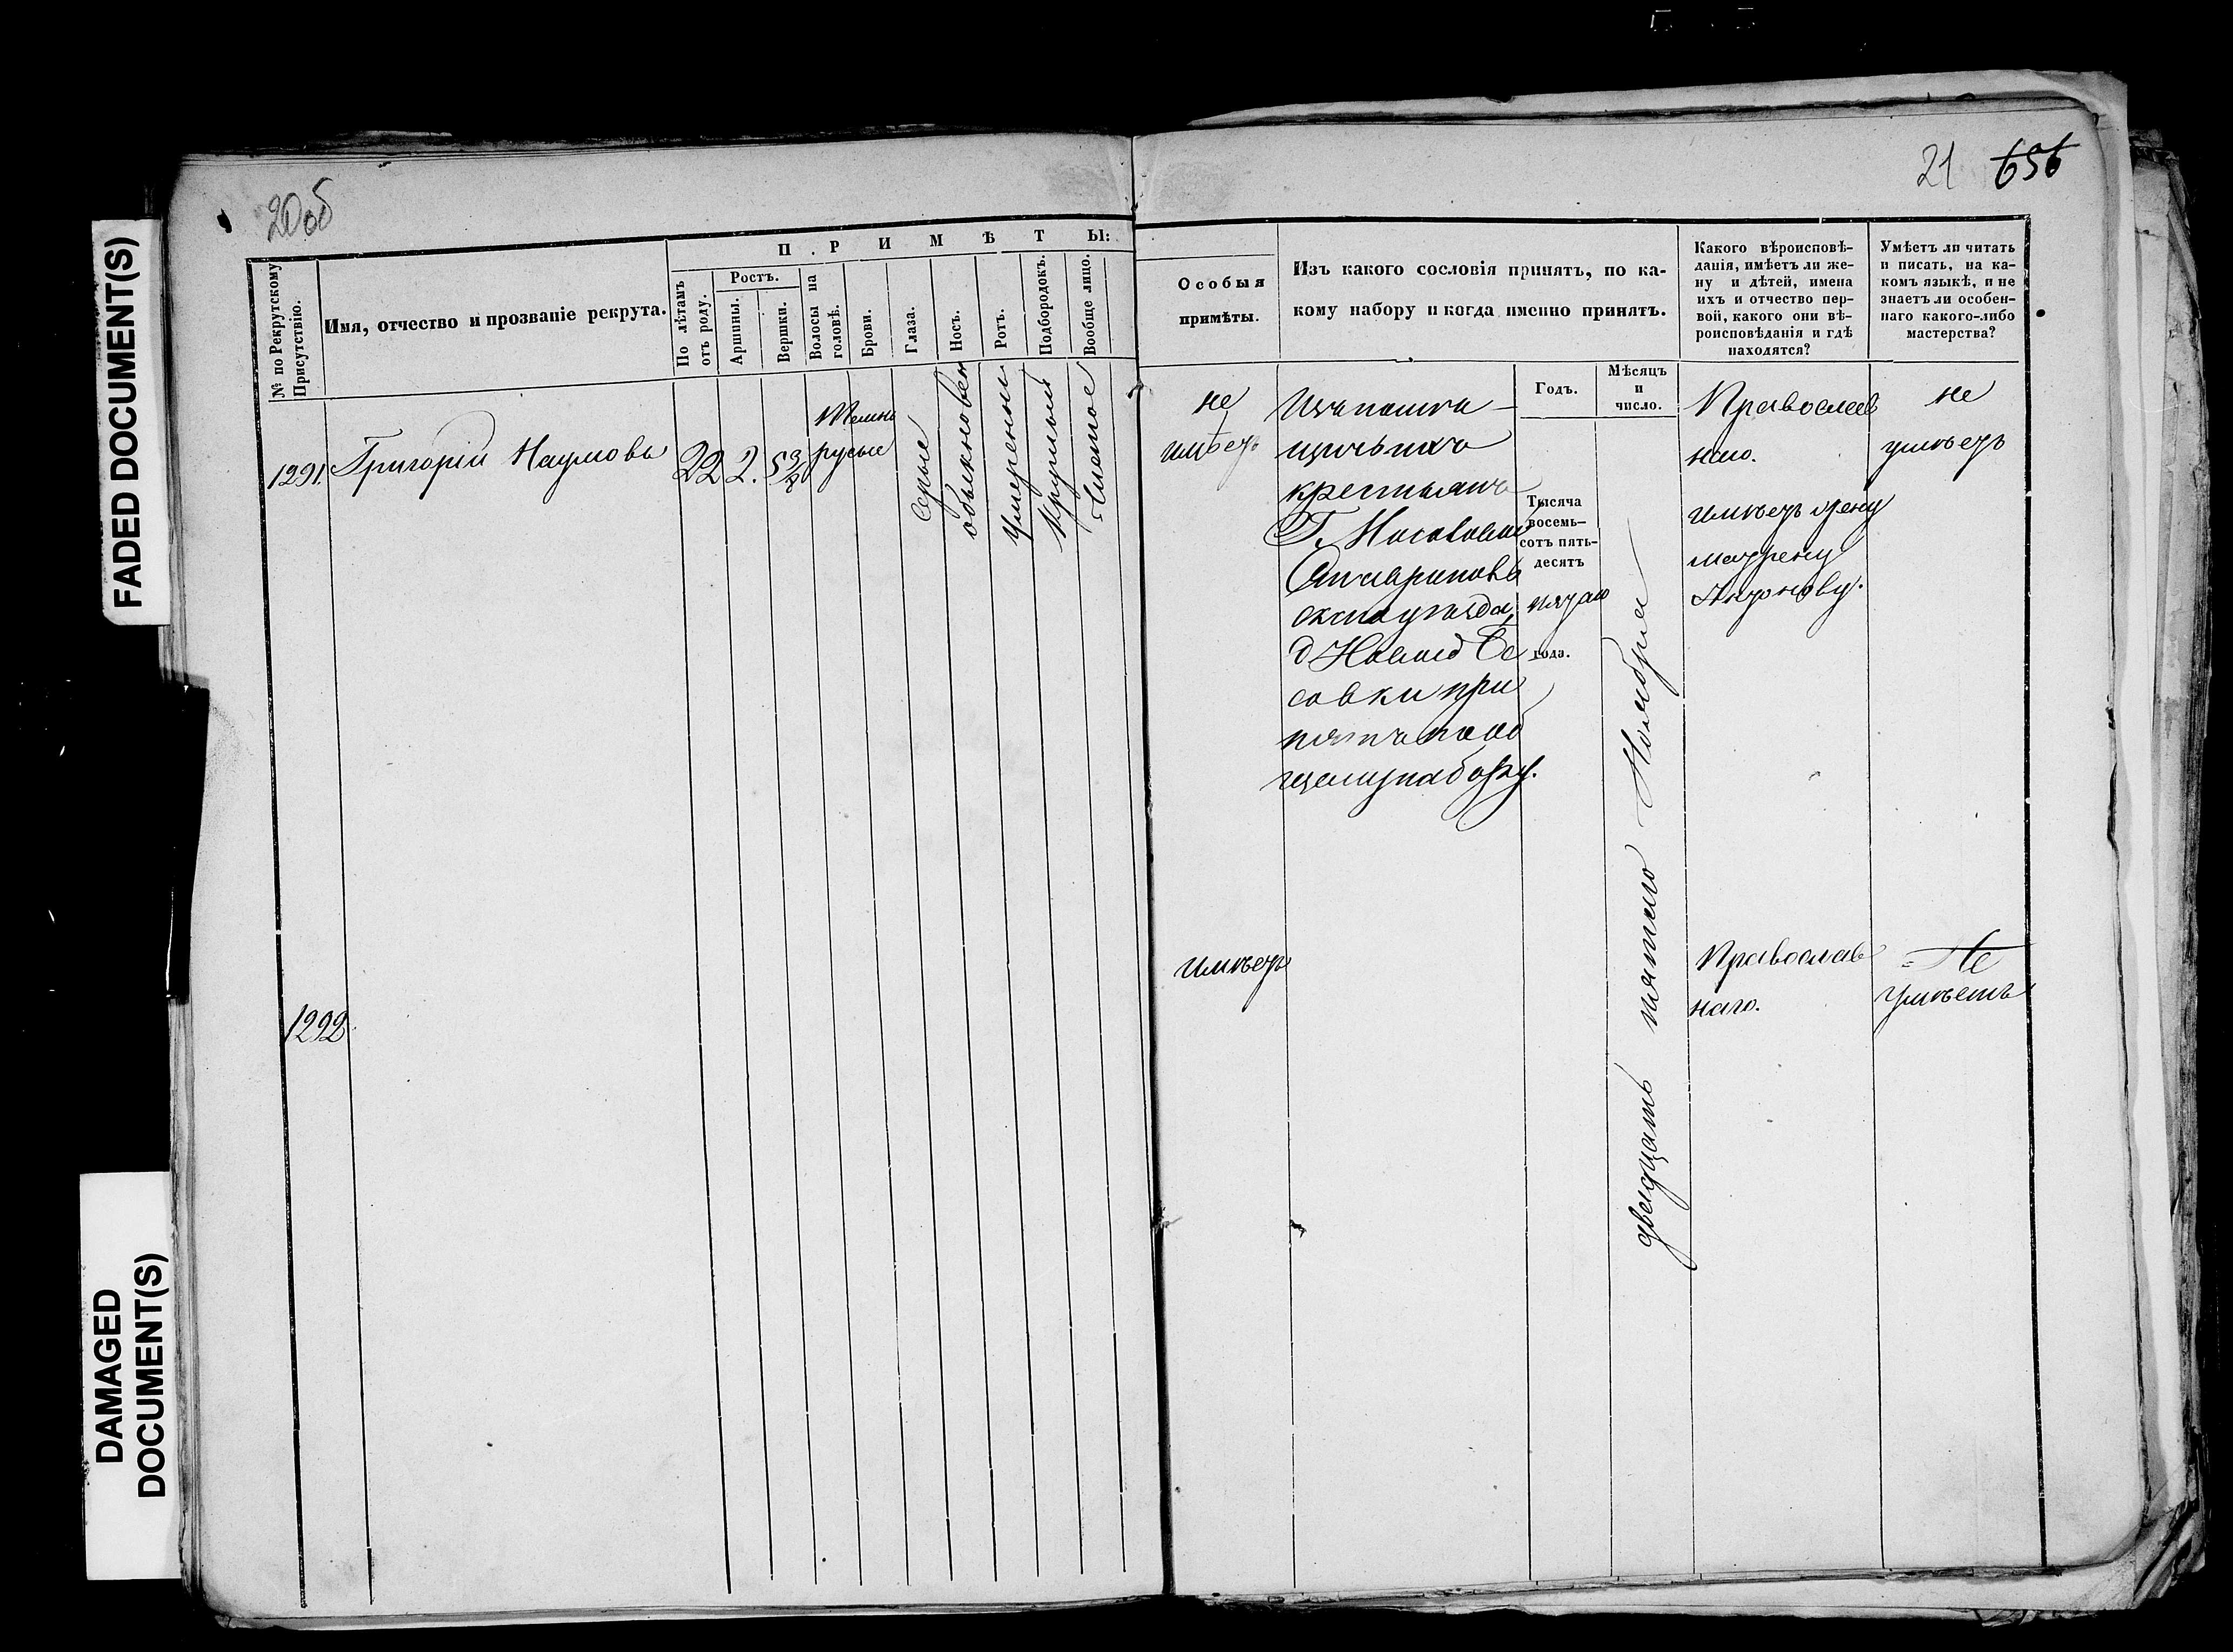 FADED DOCUMENT(S)
DAMAGED
DOCUMENT(S)
20об
21 656
П Р И М Ѣ Т Ы:
№ по Рекрутскому
Присутствію.
Имя, отчество и прозваніе рекрута.
По лѣтамъ
отъ роду.
Ростъ.
Аршины.
Вершки.
Волосы на
головѣ.
Брови.
Глаза.
Носъ.
Ротъ.
Подбородокъ.
Вообще лицо.
Особыя
примѣты.
Изъ какого сословія принятъ, по ка-
кому набору и когда именно принятъ.
Годъ.
Мѣсяцъ
и
число.
Какого вѣроисповѣ-
данія, имѣетъ ли же-
ну и дѣтей, имена
ихъ и отчество пер-
вой, какого они вѣ-
роисповѣданія и гдѣ
находятся?
Умѣетъ ли читать
и писать, на ка-
комъ языкѣ, и не
знаетъ ли особен-
наго какого-либо
мастерства?
1291.
Григорій Наумовъ
22
2.
5 3/4
темно
русые
серые
обыкновен
умеренный
круглый
чистое
не
имѣетъ
Изъ помѣ-
щичьихъ
крестьянъ
Г.
скаго уѣзда,
д Новой
совки при
нятъ по об
щему набору.
Тысяча
восемь-
сотъ пять-
десятъ
пятаго
года.
двадцать пятаго Ноября
Православ
наго.
имѣетъ жену
матрену
Антонову.
не
умѣетъ
1292
имѣетъ
Православ
наго.
Не
умѣетъ